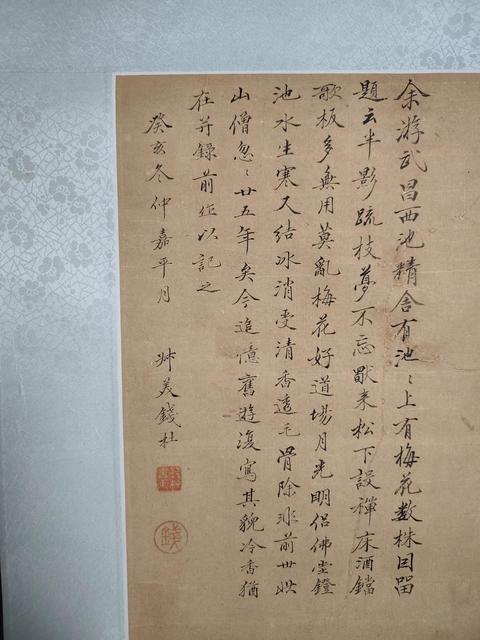 余游武昌西池精舍有池〻上有梅花数株因留
題云半影疏枝夢不忘歇来松下設禅床酒鐺
歌板多無用莫亂梅花好道場月光明侣佛堂鐙
池水生寒又结冰消受清香透毛骨除非前世此
山僧忽〻廿五年矣今追憶舊遊復寫其貌冷香猶
在并錄前作以記之
癸亥冬仲嘉平月 艸美錢杜
錢